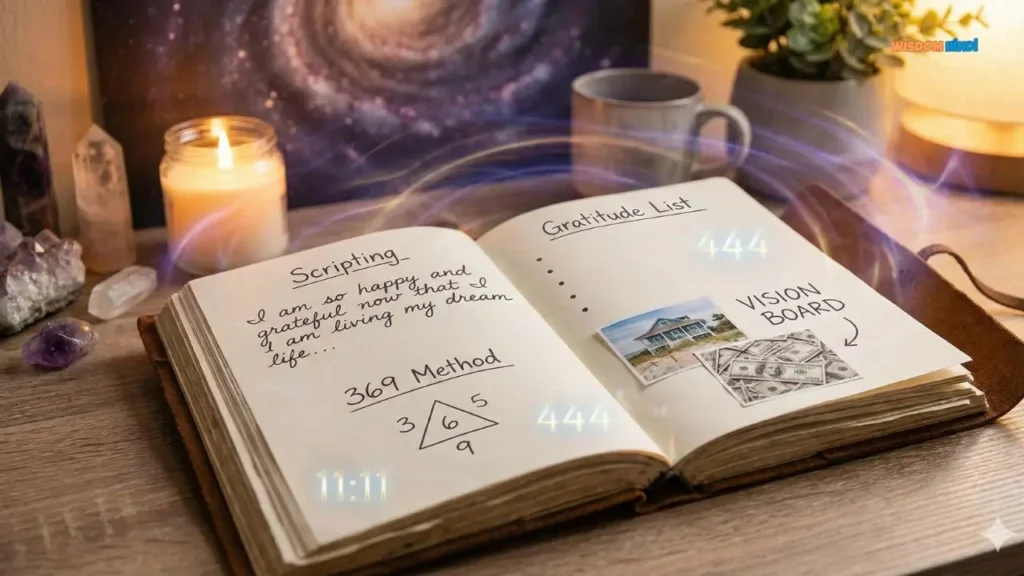 WISDOM हिन्दी
Scripting
I am so happy and
grateful now that I
I am living my dream
life...
369 Method
3
5
6
9
11:11
Gratitude List
444
VISION
BOARD
444